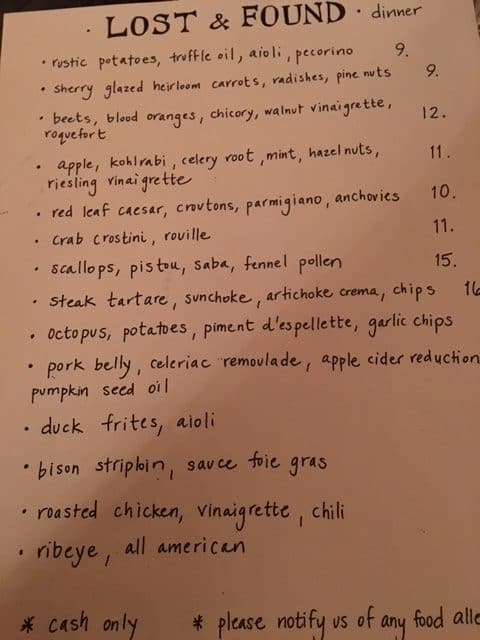 · LOST & FOUND · dinner
· rustic potatoes, truffle oil, aioli, pecorino 9.
· sherry glazed heirloom carrots, radishes, pine nuts 9.
· beets, blood oranges, chicory, walnut vinaigrette, 12.
roquefort
· apple, kohlrabi, celery root, mint, hazelnuts, 11.
riesling vinaigrette
· red leaf caesar, croutons, parmigiano, anchovies 10.
· crab crostini, rouille 11.
· scallops, pistou, saba, fennel pollen 15.
· steak tartare, sunchoke, artichoke crema, chips 16
· octopus, potatoes, piment d'espellette, garlic chips
· pork belly, celeriac remoulade, apple cider reduction
pumpkin seed oil
· duck frites, aioli
· bison striploin, sauce foie gras
· roasted chicken, vinaigrette, chili
· ribeye, all american
* cash only * please notify us of any food alle